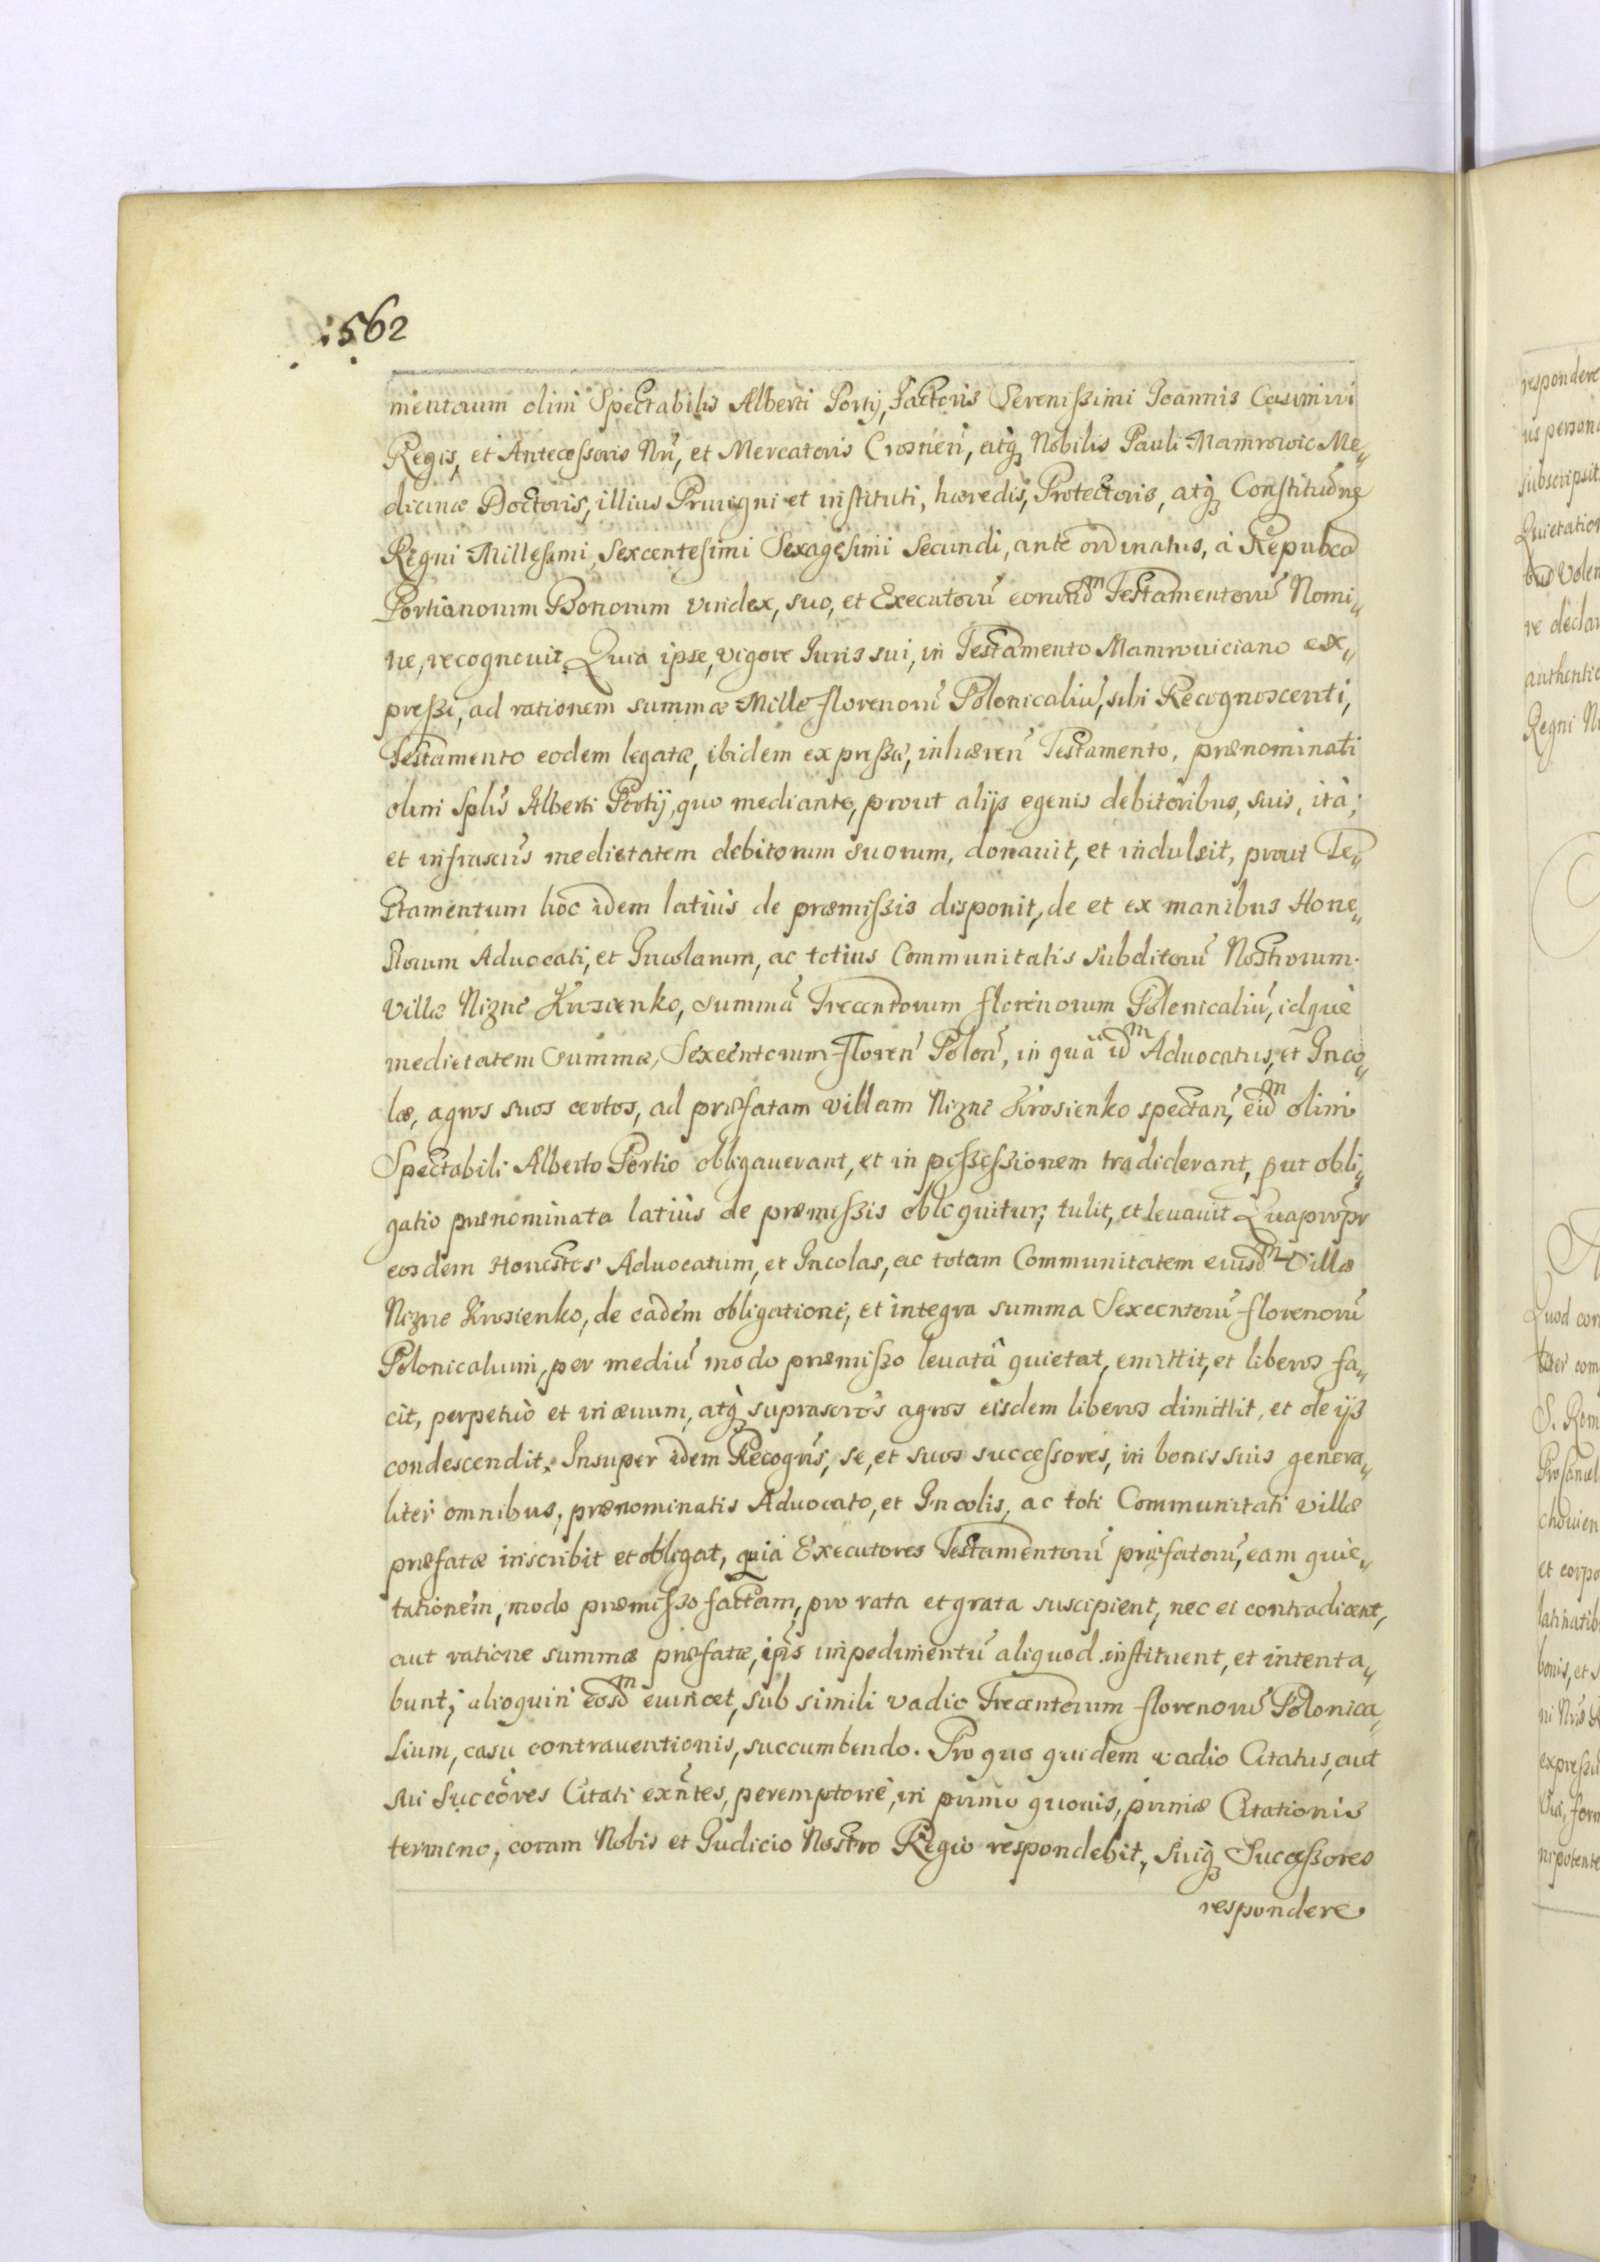 562
mentorum olim Spectabilis Alberti Portij, Factoris Serenißimi Joannis Casimiri
Regis, et Antecessoris Nri, et Mercatoris Crosnen, atq Nobilis Pauli Mamrowic Me„
dicinæ Doctoris, illius Priuigni et instituti, hæredis, Protectoris, atq Constitudne
Regni Millesimi, Sexcentesimi Sexagesimi Secundi, ante ordinatus, á Repubca
Portianorum Bonorum vindex, suo, et Executorũ eorundm Testamentorũ Nomi„
ne, recognouit. Quia ipse, vigore Juris sui, in Testamento Mamrowiciano ex„
preßi, ad rationem summæ Mille florenorũ Polonicaliũ, sibi Recognoscenti,
Testamento eodem legatæ, ibidem expreßæ, inhæren Testamento, prænominati
olim Splis Alberti Portij, quo mediante, prout alijs egenis debitoribus, suis, ità,
et infrascris medietatem debitorum suorum, donauit, et indulsit, prout Te„
stamentum hoc idem latiùs de præmißis disponit, de et ex manibus Hone„
storum Aduocati, et Incolarum, ac totius Communitatis subditorũ Nostrorum
Villæ Nizne Krosienko, summã Trecentorum florenorum Polonicaliũ, idquè
medietatem summæ, Sexcentorum Floren Polon, in quâ idm Aduocatus, et Inco„
læ, agros suos certos, ad præfatam villam Nizne Krosienko spectan, eidm olim
Spectabili Alberto Portio obligauerant, et in poßeßionem tradiderant, put obli„
gatio prænominata latiùs de præmißis obloquitur; tulit, et leuauit Quapropr
eosdem Honestos Aduocatum, et Incolas, ac totam Communitatem eiusdm Villæ
Nizne Krosienko, de eâdem obligatione, et integra summa Sexcentorũ florenorũ
Polonicalium, per mediũ modo præmißo leuatâ quietat, emittit, et liberos fa„
cit, perpetuò et in æuum, atq suprascros agros eisdem liberos dimittit, et de ijs
condescendit. Insuper idem Recogns, se, et suos successores, in bonis suis genera„
liter omnibus, prænominatis Aduocato, et Incolis, ac toti Communitati villæ
præfatæ inscribit et obligat, quia Executores Testamentorũ præfatorũ, eam quie„
tationem, modo præmißo factam, pro rata et grata suscipient, nec ei contradicent,
aut ratione summæ præfatæ, ipis impedimentũ aliquod instituent, et intenta„
bunt; alioquin eosdm euincet, sub simili vadio Trecentorum florenorũ Polonica„
lium, casu contrauentionis, succumbendo. Pro quo quidem vadio Citatus, aut
sui Succores Citati exntes, peremptoriè, in primo quouis, primæ Citationis
termino, coram Nobis et Judicio Nostro Regio respondebit, Suiq Succeßores
respondere